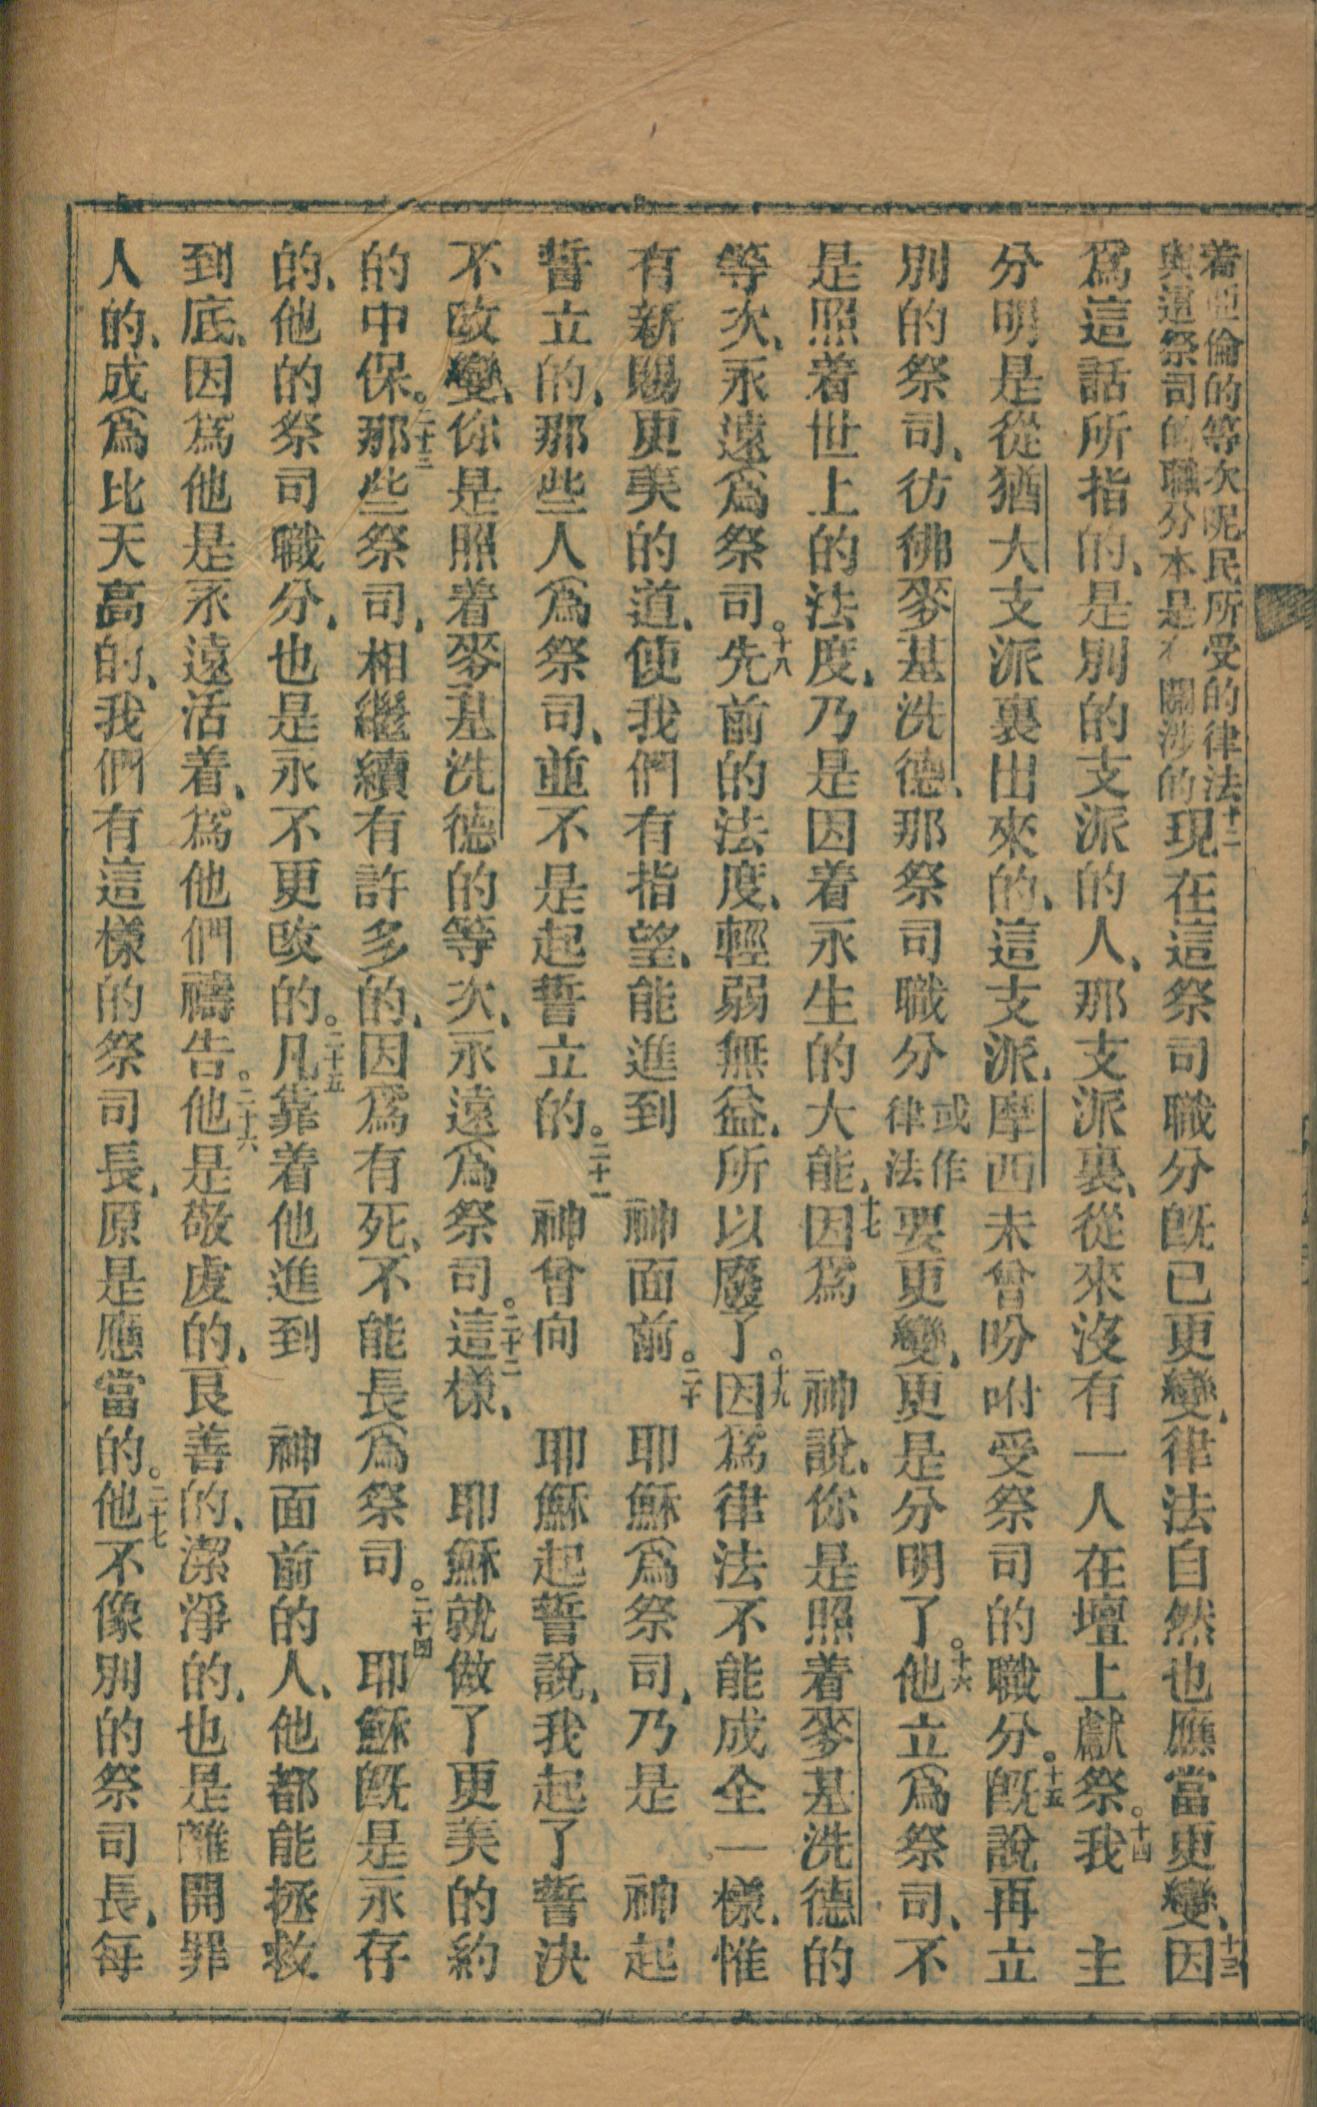 着亞倫的等次呢民所受的律法與這祭司的職分本是有關涉的十二現在這祭司職分旣已更變、律法自然也應當更變、十三因
爲這話所指的、是別的支派的人、那支派裏、從來沒有一人在壇上獻祭。十四我　主
分明是從猶大支派裏出來的、這支派、摩西未曾吩咐受祭司的職分。十五旣說再立
別的祭司、彷彿麥基洗德、那祭司職分或作律法要更變、更是分明了。十六他立爲祭司、不
是照着世上的法度、乃是因着永生的大能、十七因爲　神說、你是照着麥基洗德的
等次、永遠爲祭司。十八先前的法度、輕弱無益、所以廢了。十九因爲律法不能成全一樣、惟
有新賜更美的道、使我們有指望、能進到　神面前。二十　耶穌爲祭司、乃是　神起
誓立的、那些人爲祭司、並不是起誓立的。二十一　神曾向　耶穌起誓說、我起了誓決
不改變、你是照着麥基洗德的等次、永遠爲祭司。二十二這樣、　耶穌就做了更美的約
的中保。二十三那些祭司、相繼續有許多的、因爲有死、不能長爲祭司。二十四　耶穌旣是永存
的、他的祭司職分、也是永不更改的。二十五凡靠着他進到　神面前的人、他都能拯救
到底、因爲他是永遠活着、爲他們禱告。二十六他是敬虔的、良善的、潔淨的、也是離開罪
人的、成爲比天高的、我們有這樣的祭司長、原是應當的。二十七他不像別的祭司長、每